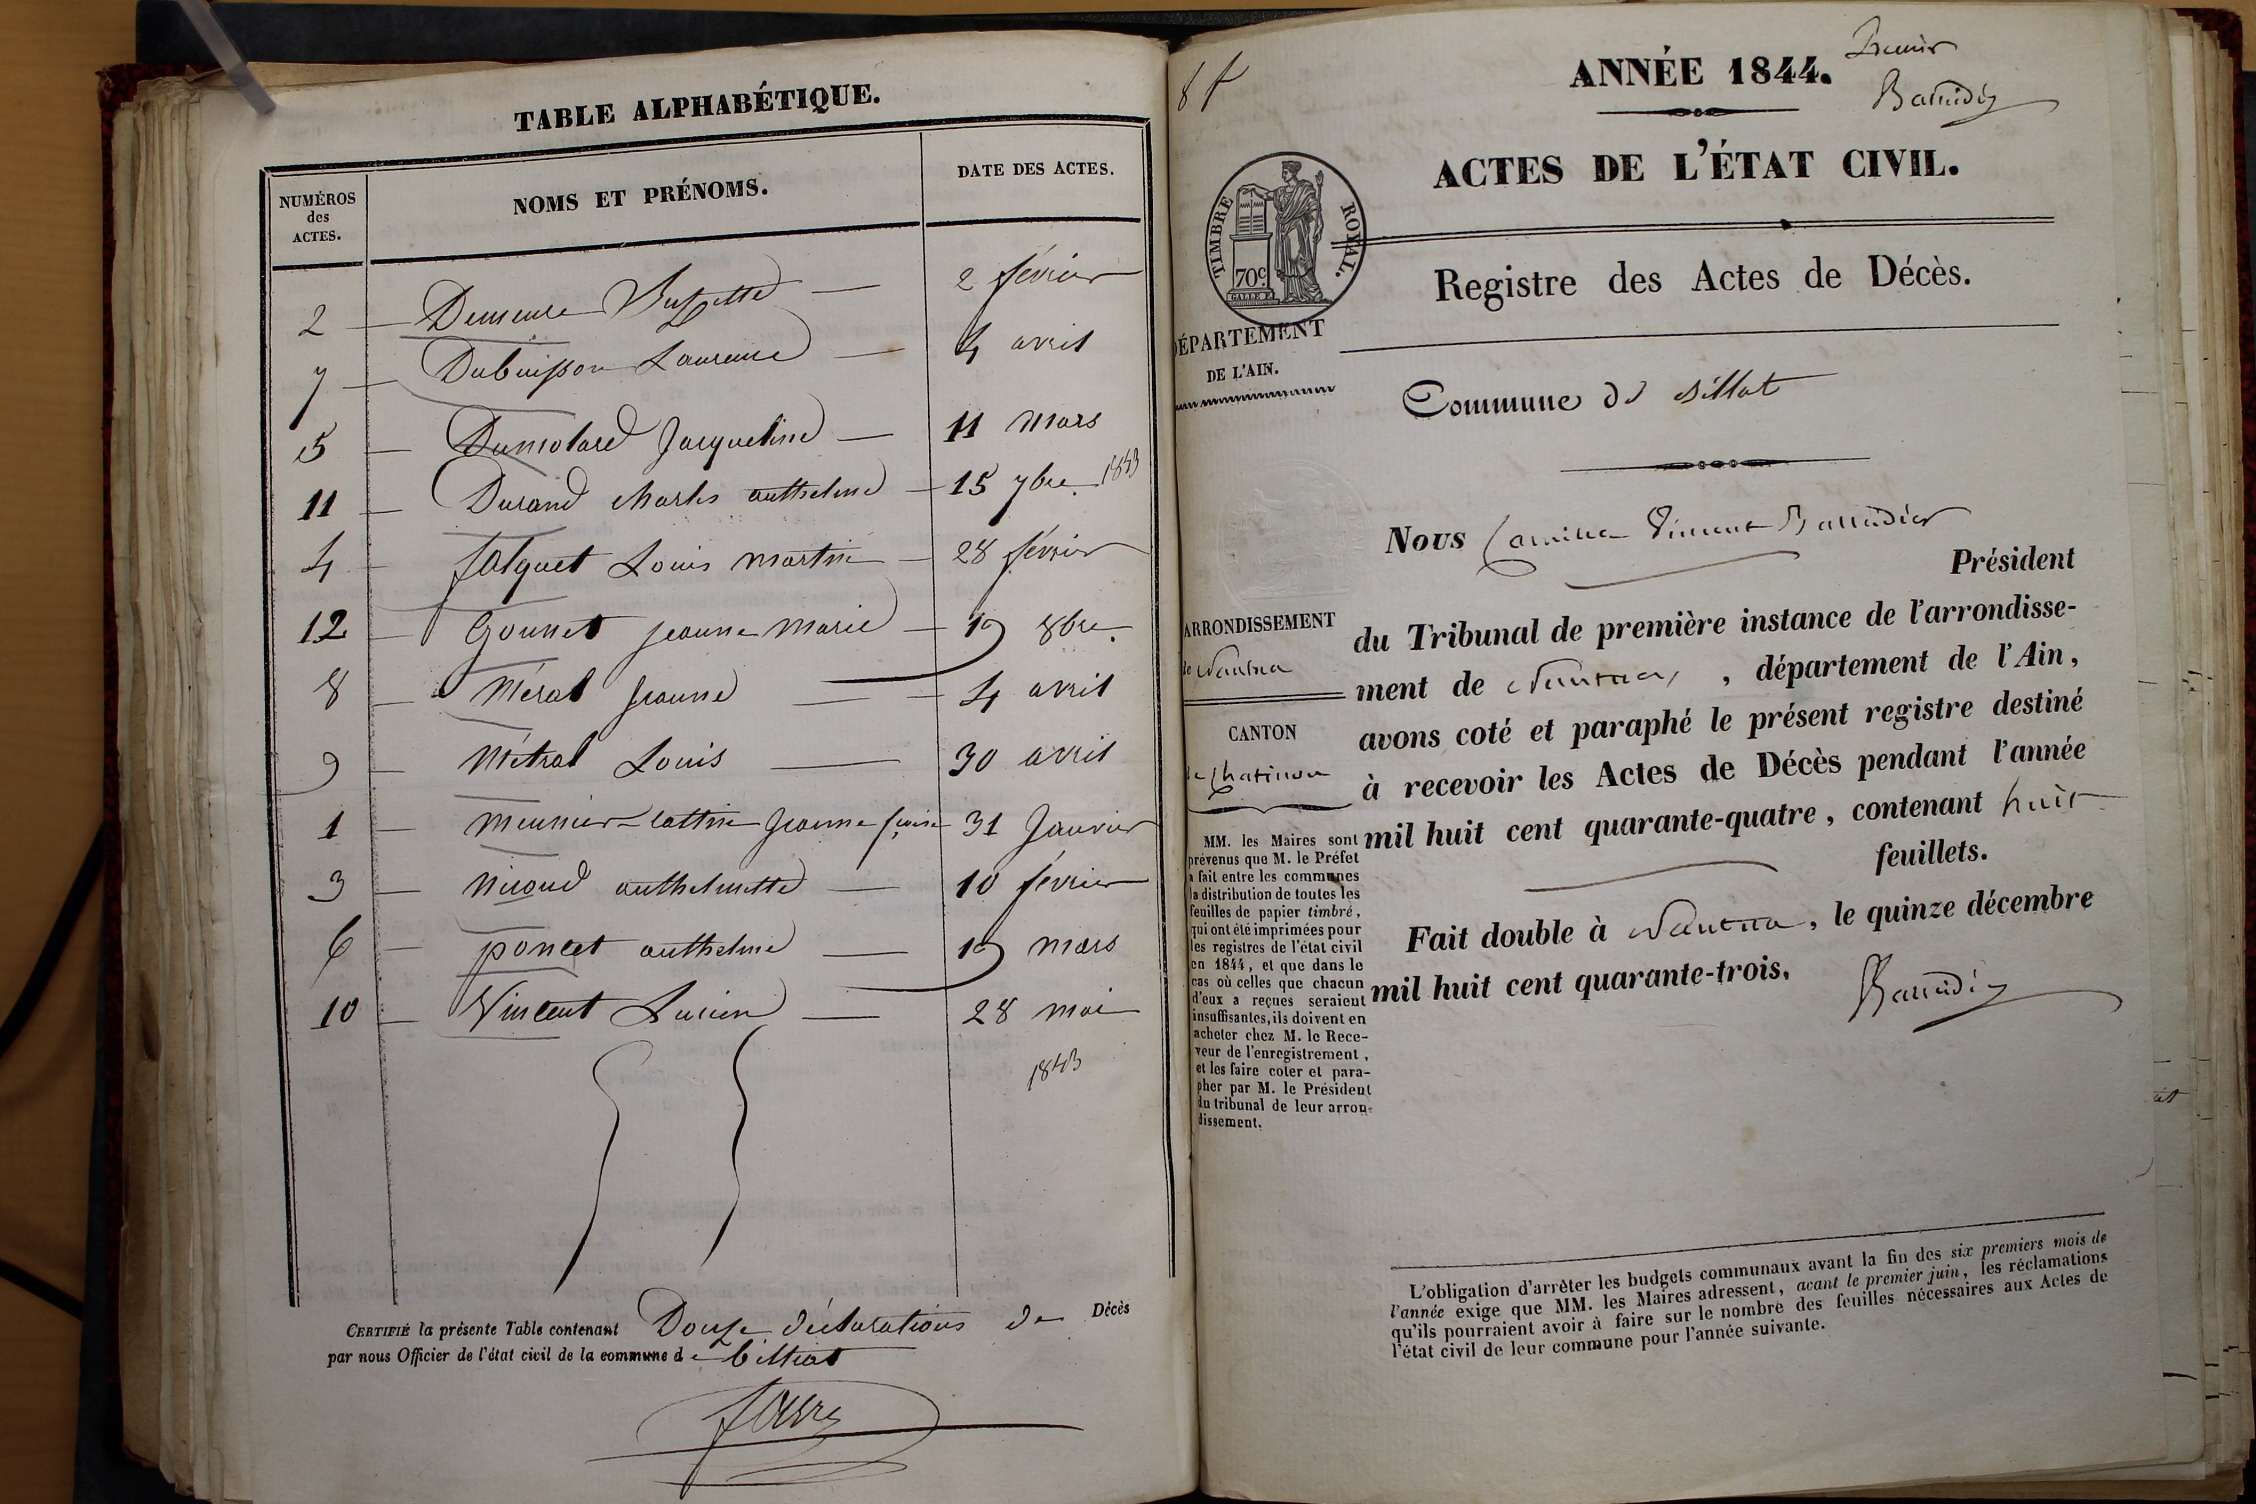 TABLE ALPHABÉTIQUE.
NUMÉROS
des
ACTES.
NOMS ET PRÉNOMS.
DATE DES ACTES.
2 — Demeure Suzette — 2 février
7 — Dubuisson Laurence — 4 avril
5 — Dumolard Jacqueline — 11 mars
11 — Durand Charles anthelme — 15 7bre 1843
4 — falquet Louis martin — 28 février
12 — Gounet jeanne marie — 19 8bre
8 — Méral jeanne — 4 avril
9 — Métral Louis — 30 avril
1 — meunier-cattin jeanne fçoise 31 Janvier
3 — nicoud anthelmette — 10 février
6 — poncet anthelme — 19 mars
10 — Vincent Lucien — 28 mai
1843
CERTIFIÉ la présente Table contenant Douze déclarations de Décès
par nous Officier de l'état civil de la commune de billiat
favre
8 f
ANNÉE 1844.
Premier
ACTES DE L'ÉTAT CIVIL.
TIMBRE ROYAL.
70c.
Registre des Actes de Décès.
DÉPARTEMENT
DE L'AIN.
Commune de Billiat
Nous Camille Vincent
Président
ARRONDISSEMENT
de Nantua
du Tribunal de première instance de l'arrondisse-
ment de Nantua, département de l'Ain,
avons coté et paraphé le présent registre destiné
CANTON
de Chatillon
à recevoir les Actes de Décès pendant l'année
mil huit cent quarante-quatre, contenant huit
feuillets.
Fait double à Nantua, le quinze décembre
mil huit cent quarante-trois.
MM. les Maires sont
prévenus que M. le Préfet
a fait entre les communes
la distribution de toutes les
feuilles de papier timbré,
qui ont été imprimées pour
les registres de l'état civil
en 1844, et que dans le
cas où celles que chacun
d'eux a reçues seraient
insuffisantes, ils doivent en
acheter chez M. le Rece-
veur de l'enregistrement,
et les faire coter et para-
pher par M. le Président
du tribunal de leur arron-
dissement.
L'obligation d'arrêter les budgets communaux avant la fin des six premiers mois de
l'année exige que MM. les Maires adressent, avant le premier juin, les réclamations
qu'ils pourraient avoir à faire sur le nombre des feuilles nécessaires aux Actes de
l'état civil de leur commune pour l'année suivante.